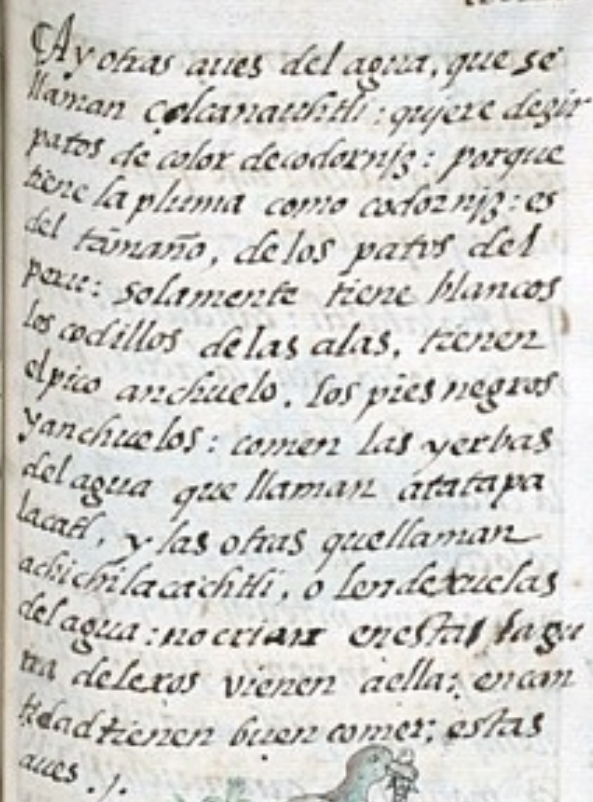 Ay otras aues del agua, que se
llaman çolcanauhtli: qujere dezir
patos de color decodornjz: porque
tiene la pluma como codornjz: es
del tamaño, de los patos del
peru: solamente tiene blancos
los codillos de las alas, tienen
el pico anchuelo, los pies negros
y anchuelos: comen las yerbas
del agua que llaman atatapa
lacatl, y las otras que llaman
achichilacachtli, o lendexuelas
del agua: no crian en esta lagu
na de lexos vienen a ella: en can
tidad tienen buen comer; estas
aues ./.